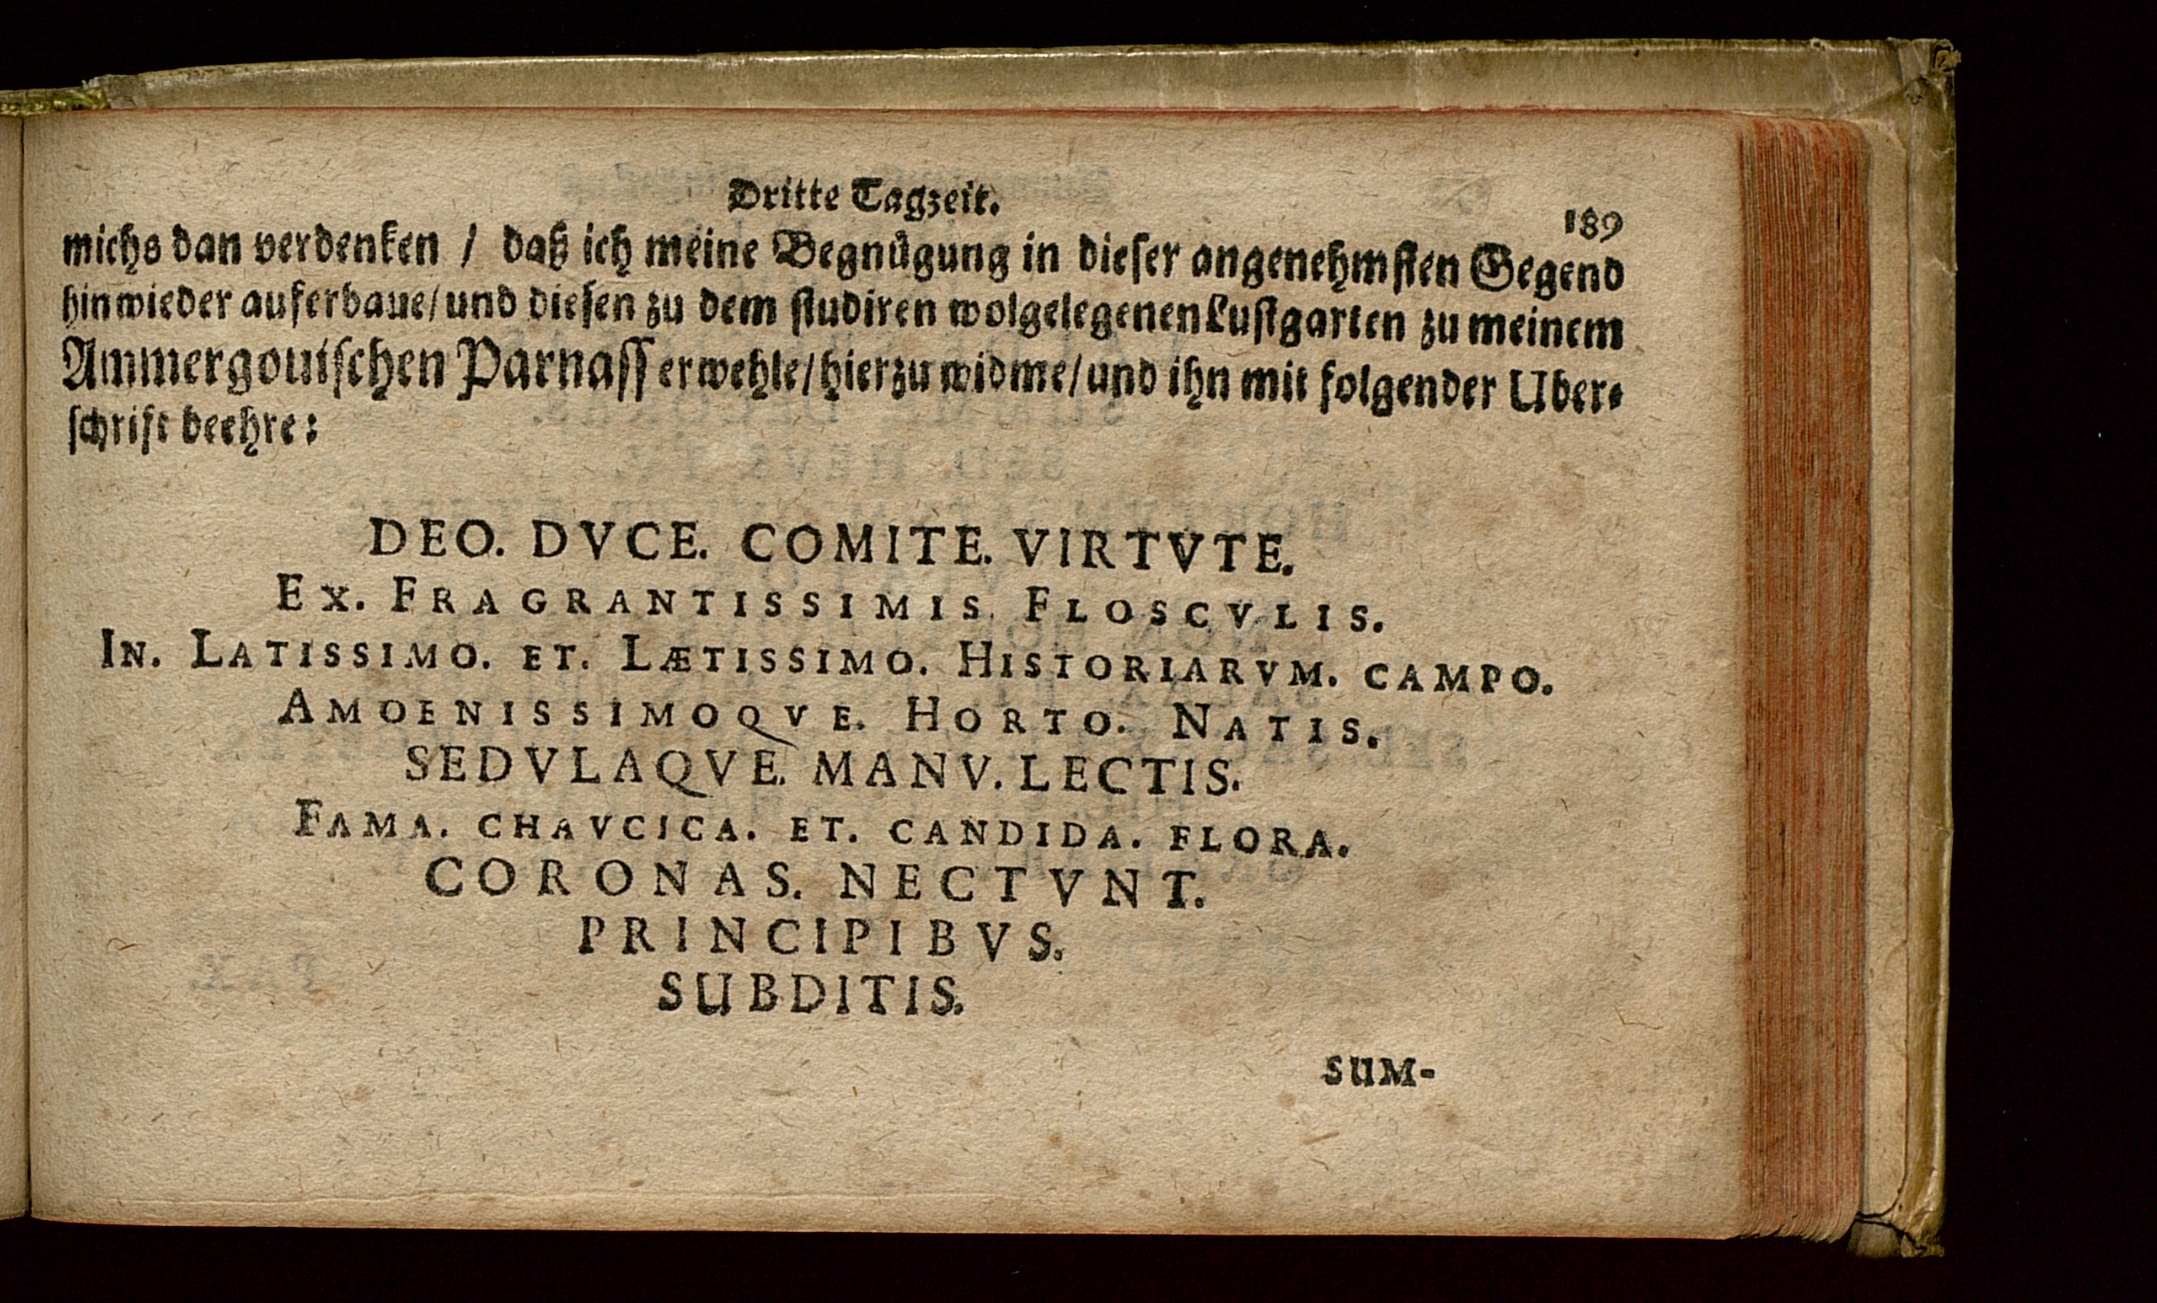 Dritte Tagzeit.
189
michs dan verdenken / daß ich meine Begnügung in dieser angenehmsten Gegend
hinwieder auferbaue/ und diesen zu dem studiren wolgelegenen Lustgarten zu meinem
Ammergouischen Parnass erwehle/ hierzu widme/ und ihn mit folgender Uber-
schrift beehre:
DEO. DVCE. COMITE. VIRTVTE.
EX. FRAGRANTISSIMIS. FLOSCVLIS.
IN. LATISSIMO. ET. LÆTISSIMO. HISTORIARVM. CAMPO.
AMOENISSIMOQVE. HORTO. NATIS.
SEDVLAQVE. MANV. LECTIS.
FAMA. CHAVCICA. ET. CANDIDA. FLORA.
CORONAS. NECTVNT.
PRINCIPIBVS.
SUBDITIS.
SUM-